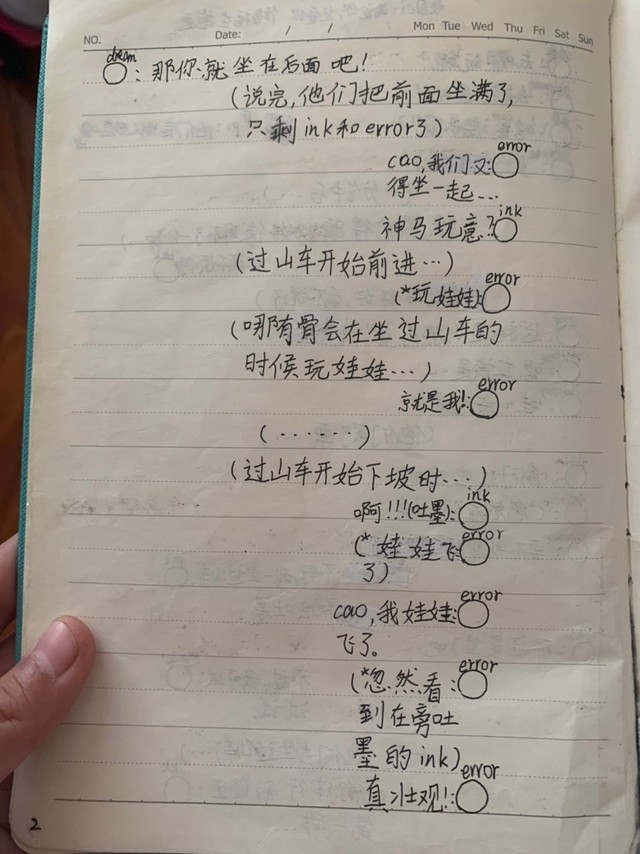 NO.
Date: / /
Mon Tue Wed Thu Fri Sat Sun
dream
: 那你就坐在后面吧!
(说完,他们把前面坐满了,
只剩ink和error了)
error
cao,我们又:
得坐一起...
ink
神马玩意?
(过山车开始前进...)
error
(*玩娃娃):
(哪有骨会在坐过山车的
时候玩娃娃...)
error
就是我!:
(......)
(过山车开始下坡时...)
ink
啊!!!(吐墨):
error
(*娃娃飞
了)
error
cao,我娃娃:
飞了。
error
(*忽然看:
到在旁吐
墨的ink)
error
真壮观!:
2